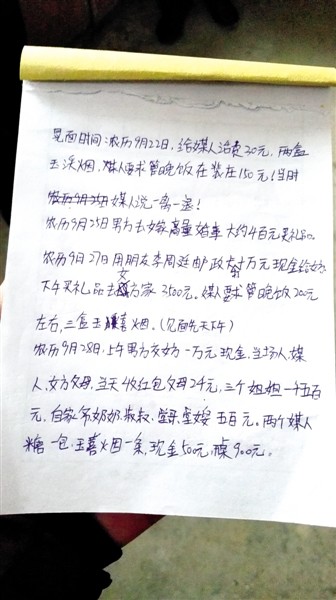 见面时间:农历9月22日,给媒人话费30元,两盒
玉溪烟,媒人要求管晚饭在 150元(当时
媒人说一离一退!
农历9月25日男方去女家商量婚事大约4百元买礼品。
农历9月27日用朋友李周廷邮政 1万元现金给
下午买礼品去女方家3500元,媒人要求管晚饭200元
左右,三盒玉喜烟。(见面先天下午)
农历9月28日,上午男方交女方一万元现金,当场人,媒
人,女方父母,当天收红包父母24元,三个姐姐一千五百
元,自家爷奶奶叔叔, 五百元。两个媒人
糖一包,玉喜烟一条,现金50元,桌900元。